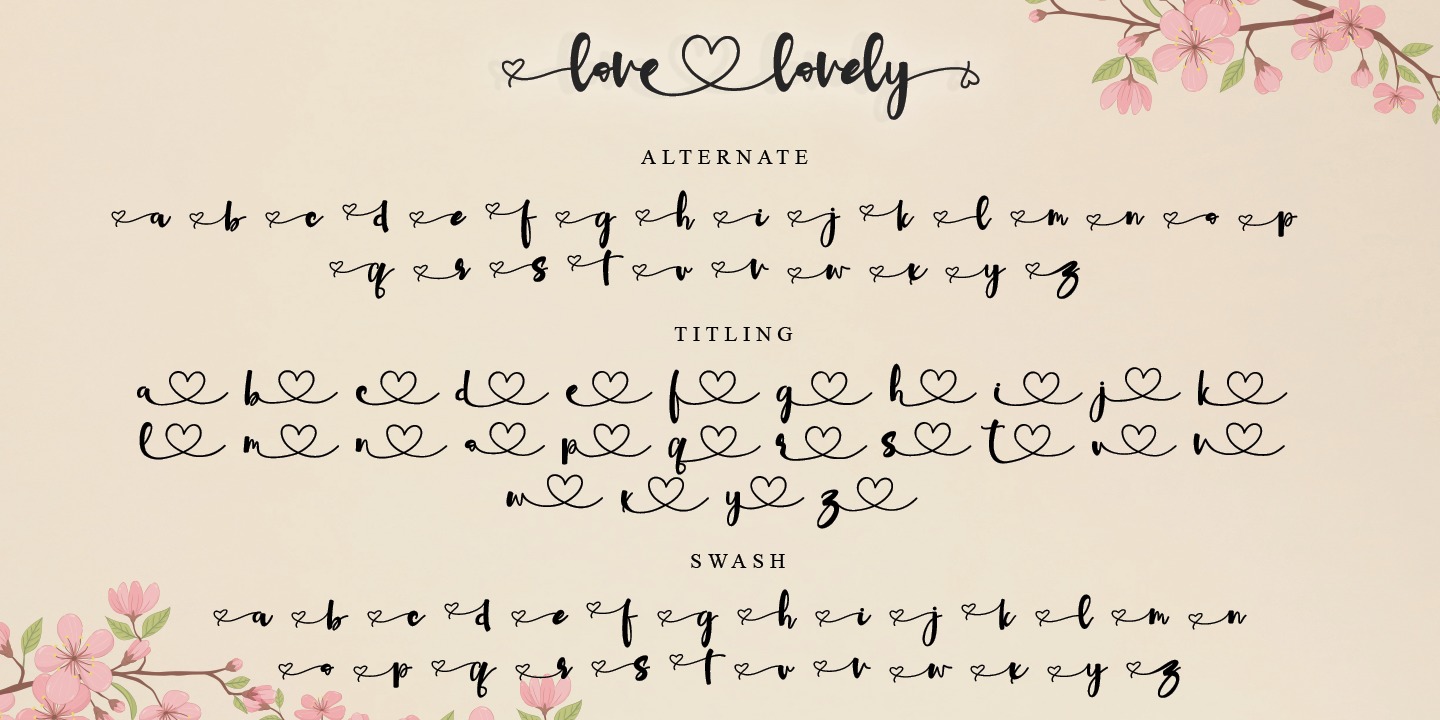 love lovely
ALTERNATE
a b c d e f g h i j k l m n o p
q r s t u v w x y z
TITLING
a b c d e f g h i j k
l m n o p q r s t u v
w x y z
SWASH
a b c d e f g h i j k l m n
o p q r s t u v w x y z